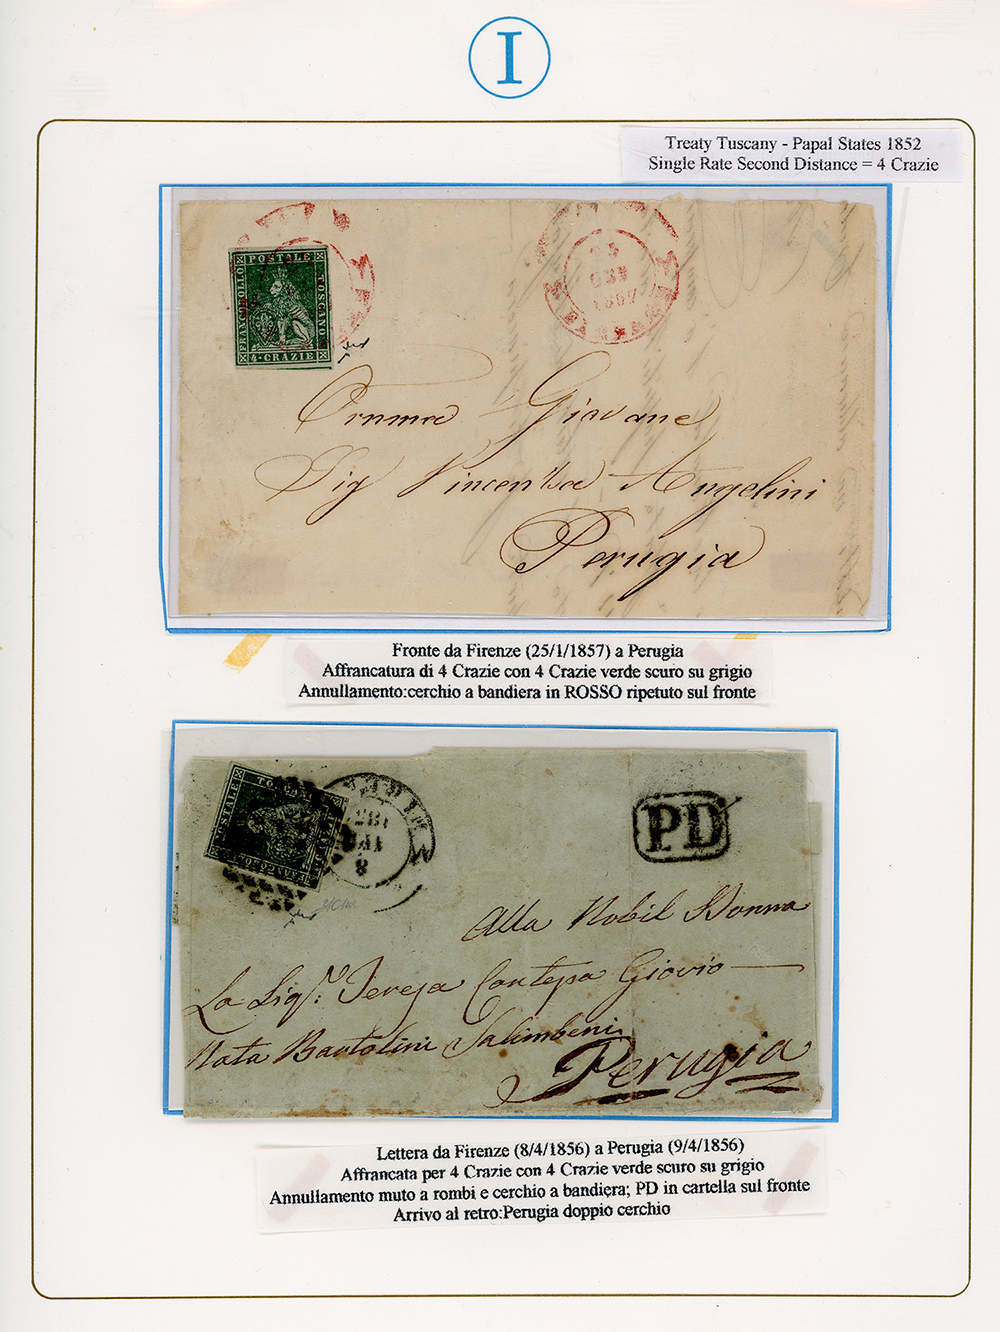 I
Treaty Tuscany - Papal States 1852
Single Rate Second Distance = 4 Crazie
FRANCOBOLLO
POSTALE
TOSCANO
4·CRAZIE
25
1857
Giovane
Sig Angelini
Perugia
Fronte da Firenze (25/1/1857) a Perugia
Affrancatura di 4 Crazie con 4 Crazie verde scuro su grigio
Annullamento:cerchio a bandiera in ROSSO ripetuto sul fronte
POSTALE
8
PD
Alla Nobil Donna
La Sigr.a Teresa Contessa Giovio
Nata Bartolini Salimbeni
Perugia
Lettera da Firenze (8/4/1856) a Perugia (9/4/1856)
Affrancata per 4 Crazie con 4 Crazie verde scuro su grigio
Annullamento muto a rombi e cerchio a bandiera; PD in cartella sul fronte
Arrivo al retro:Perugia doppio cerchio